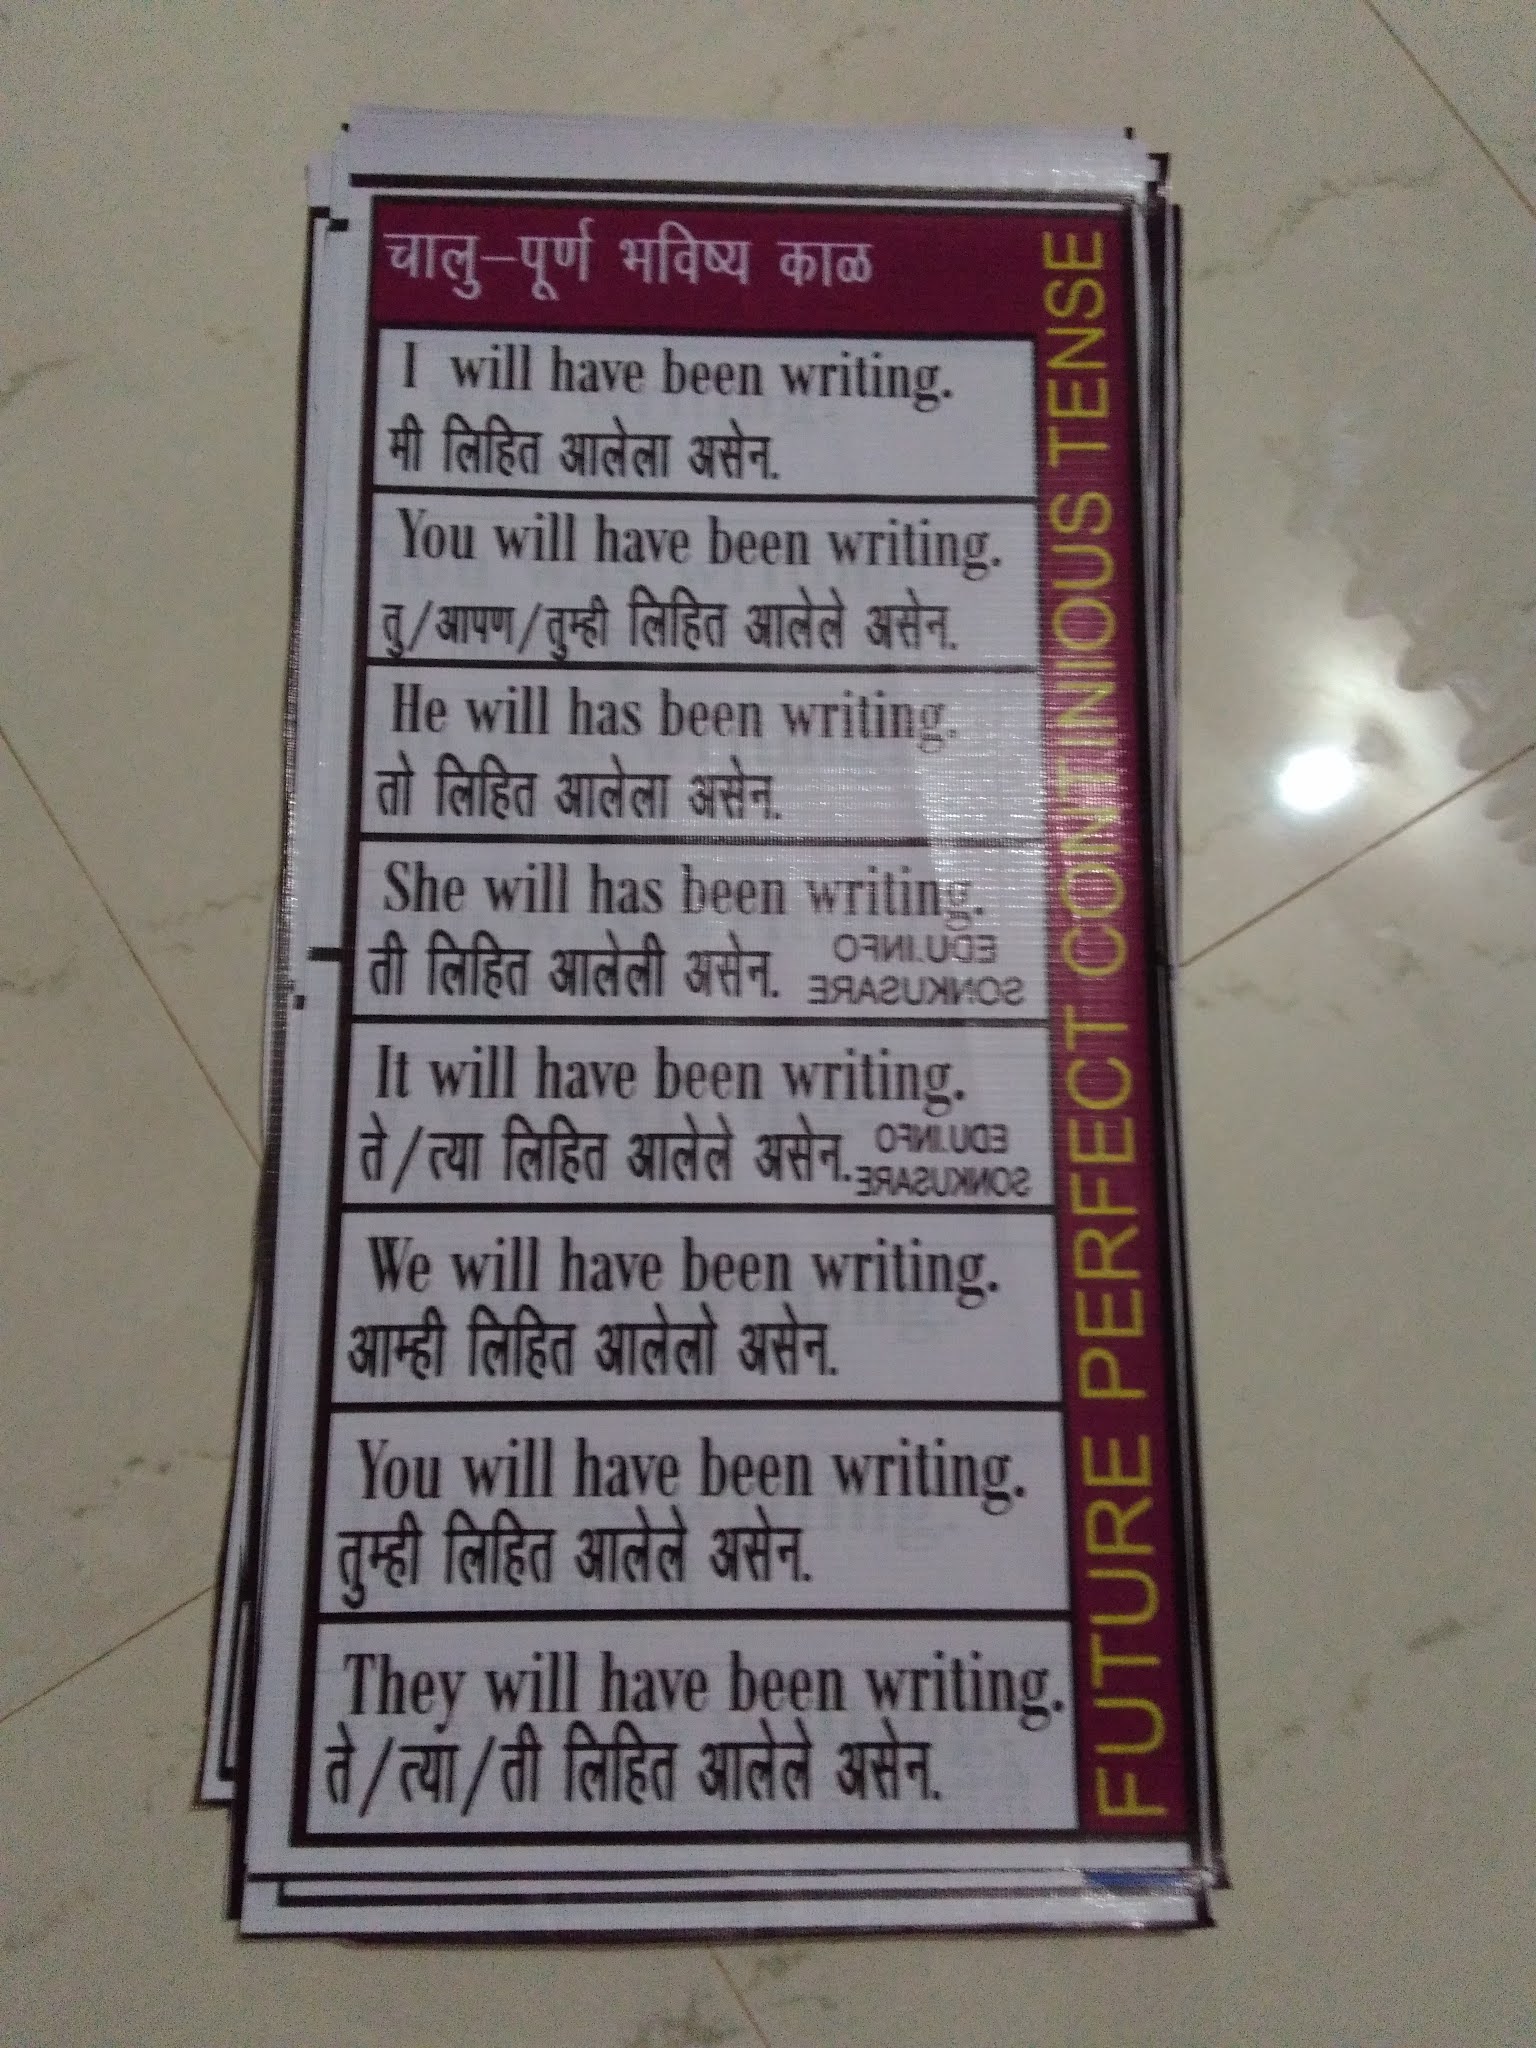 चालु-पूर्ण भविष्य काळ
FUTURE PERFECT CONTINIOUS TENSE
I will have been writing.
मी लिहित आलेला असेन.
You will have been writing.
तु/आपण/तुम्ही लिहित आलेले असेन.
He will has been writing.
तो लिहित आलेला असेन.
She will has been writing.
ती लिहित आलेली असेन.
EDU.INFO
SONKUSARE
It will have been writing.
ते/त्या लिहित आलेले असेन.
EDU.INFO
SONKUSARE
We will have been writing.
आम्ही लिहित आलेलो असेन.
You will have been writing.
तुम्ही लिहित आलेले असेन.
They will have been writing.
ते/त्यां/ती लिहित आलेले असेन.